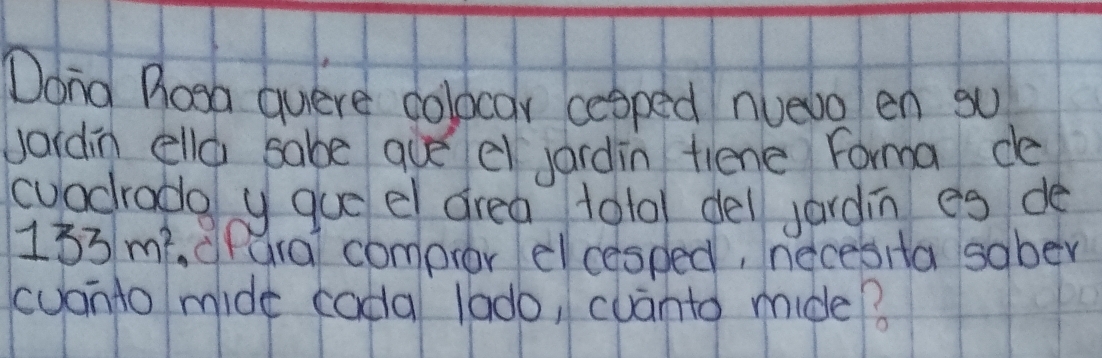 Doña Rosa quiere colocar cesped nuevo en su
jardin ella sabe que el jardin tiene Forma de
cuadrado y que el área total del jardín es de
133 m². ¿Para comprar el cesped, necesita saber
cuánto mide cada lado, cuánto mide?